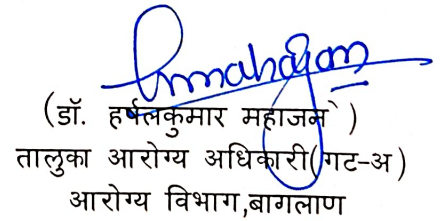 (डॉ. हर्षलकुमार महाजन)
तालुका आरोग्य अधिकारी(गट-अ)
आरोग्य विभाग,बागलाण